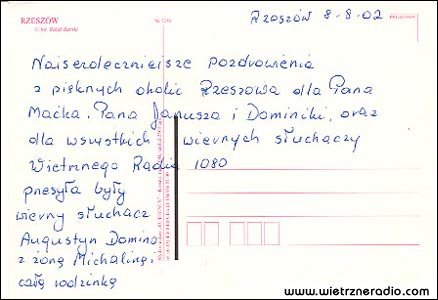 RZESZÓW
Rzeszów 8-8-02
Najserdeczniejsze pozdrowienia
z pięknych okolic Rzeszowa dla Pana
Maćka, Pana Janusza i Dominiki, oraz
dla wszystkich wiernych słuchaczy
Wietrznego Radia 1080
przesyła były
wierny słuchacz
Augustyn Domino
z żoną Michaliną i
całą rodzinką
www.wietrzneradio.com